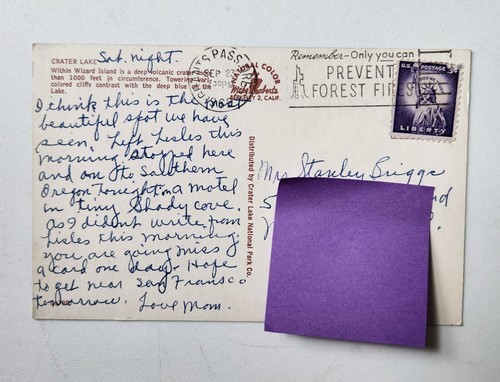 CRATER LAKE
Within Wizard Island is a deep volcanic crater
than 1000 feet in circumference. Towering vari-
colored cliffs contrast with the deep blue of the
Lake.
Sat. night.
I think this is the most
beautiful spot we have
seen. Left Lisles this
morning. Stopped here
and on to Southern
Oregon tonight in a motel
in tiny Shady cove.
as I didn't write from
Lisles this morning
you are going miss
a card one day. Hope
to get near San Fransco
tomorrow. Love Mom.
Distributed by Crater Lake National Park Co.
NATURAL COLOR
Mike Roberts
BERKELEY 2, CALIF.
GRANTS PASS
SEP
Remember-Only you can
PREVENT
FOREST FI
U.S. POSTAGE
3¢
LIBERTY
Mrs Stanley Briggs
5